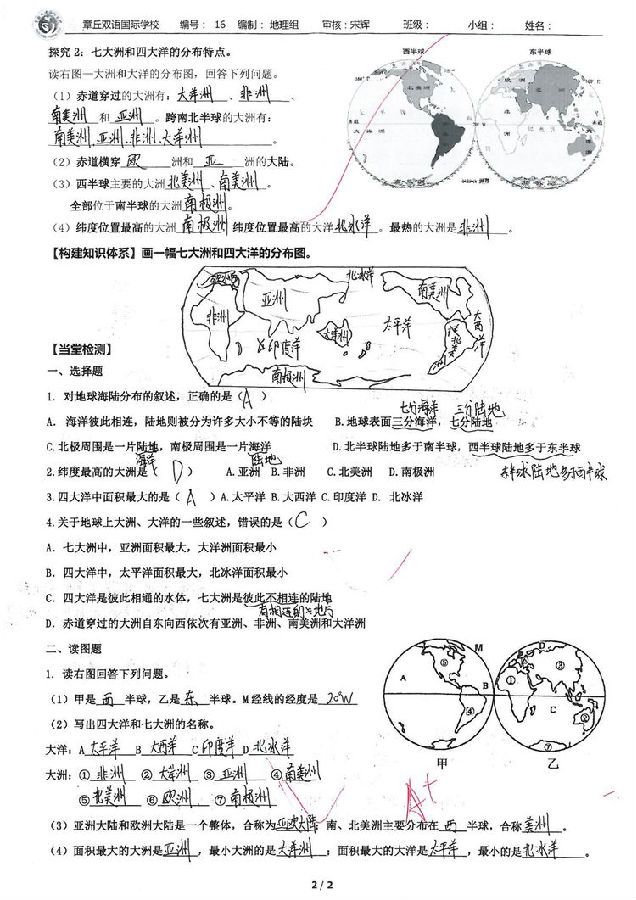 章丘双语国际学校 编号： 15 编制：地理组 审核：宋辉 班级： 小组： 姓名：
探究 2：七大洲和四大洋的分布特点。
西半球 东半球
读右图—大洲和大洋的分布图，回答下列问题。
（1）赤道穿过的大洲有：大洋洲、非洲、
南美洲 和 亚洲 。跨南北半球的大洲有：
南美洲,亚洲,非洲,大洋洲。
（2）赤道横穿 欧 洲和 亚 洲的大陆。
（3）西半球主要的大洲北美洲、南美洲。
全部位于南半球的大洲南极洲。
（4）纬度位置最高的大洲南极洲 纬度位置最高的大洋北冰洋。最热的大洲是非洲。
【构建知识体系】画一幅七大洲和四大洋的分布图。
北冰洋
亚洲
南美洲
非洲
大西洋
太平洋
大洋洲
印度洋
南极洲
【当堂检测】
一、选择题
1. 对地球海陆分布的叙述，正确的是（A）
七分海洋 三分陆地
A. 海洋彼此相连，陆地则被分为许多大小不等的陆块 B.地球表面三分海洋，七分陆地
C.北极周围是一片陆地，南极周围是一片海洋 D.北半球陆地多于南半球，西半球陆地多于东半球
海洋 陆地
2.纬度最高的大洲是（D） A.亚洲 B.非洲 C.北美洲 D.南极洲
东半球陆地多于西半球
3.四大洋中面积最大的是（A）A.太平洋 B.大西洋 C.印度洋 D. 北冰洋
4.关于地球上大洲、大洋的一些叙述，错误的是（C）
A. 七大洲中，亚洲面积最大，大洋洲面积最小
B. 四大洋中，太平洋面积最大，北冰洋面积最小
C. 四大洋是彼此相通的水体，七大洲是彼此不相连的陆地
D. 赤道穿过的大洲自东向西依次有亚洲、非洲、南美洲和大洋洲
二、读图题
1. 读右图回答下列问题。
（1）甲是 西 半球，乙是 东 半球。M 经线的经度是 20°W
（2）写出四大洋和七大洲的名称。
M D
⑤ ② ① ③
A B C
④ ②
⑦
甲 乙
大洋：A太平洋 B 大西洋 C印度洋 D北冰洋
大洲：① 非洲 ② 大洋洲 ③ 亚洲 ④南美洲
⑤北美洲 ⑥欧洲 ⑦南极洲
A+
（3）亚洲大陆和欧洲大陆是一个整体，合称为亚欧大陆；南、北美洲主要分布在 西 半球，合称美洲。
（4）面积最大的大洲是亚洲，最小大洲的是大洋洲；面积最大的大洋是太平洋，最小的是北冰洋。
2 / 2